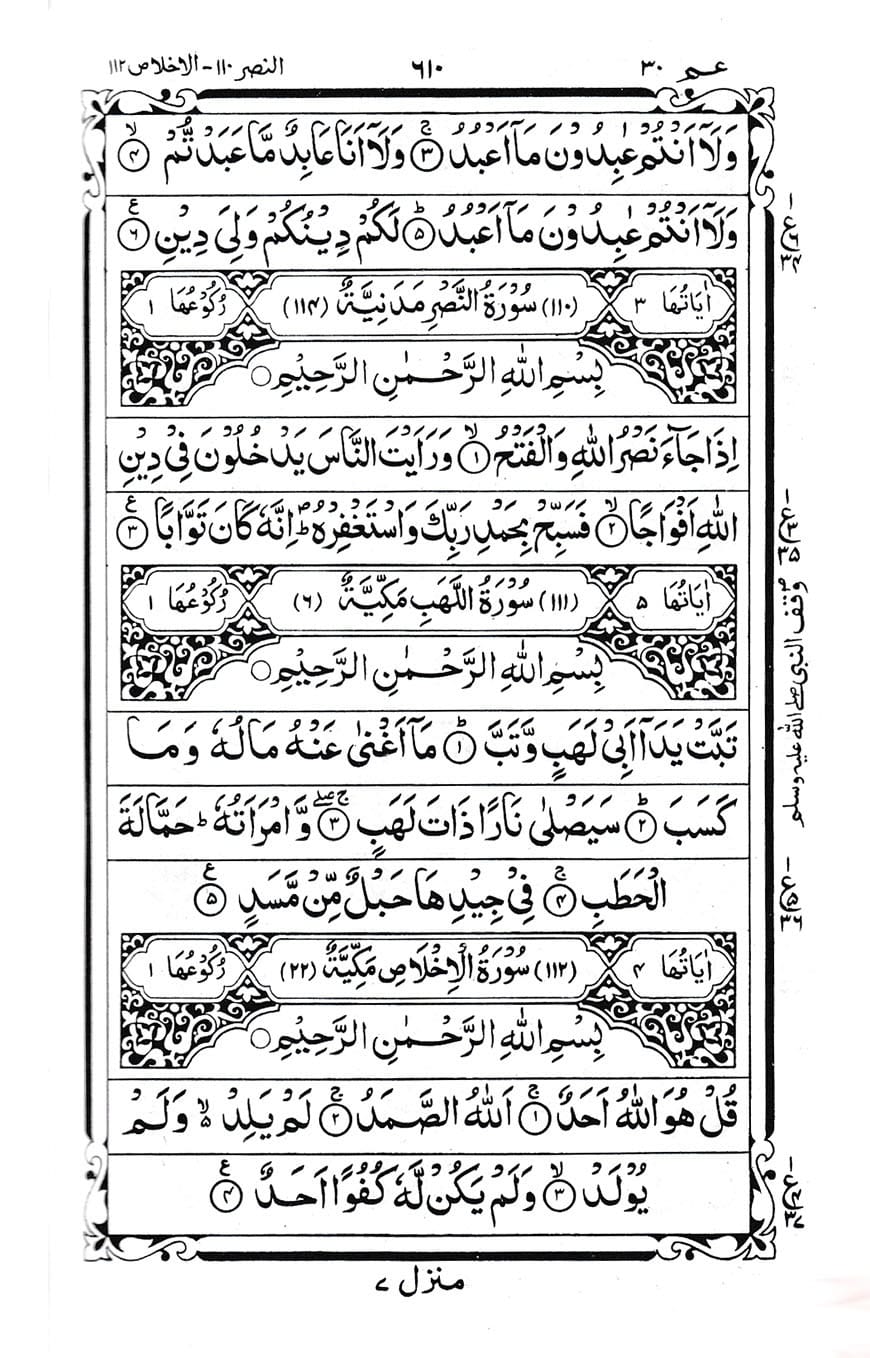 عـم ۳۰
۶۱۰
النصر ۱۱۰ - الاخلاص ۱۱۲
وَلَاۤ اَنۡتُمۡ عٰبِدُوۡنَ مَاۤ اَعۡبُدُ ۚ‏ ﴿۳﴾ وَلَاۤ اَنَا عَابِدٌ مَّا عَبَدۡتُّمۡ ۙ‏ ﴿۴﴾
وَلَاۤ اَنۡتُمۡ عٰبِدُوۡنَ مَاۤ اَعۡبُدُ ؕ‏ ﴿۵﴾ لَكُمۡ دِيۡنُكُمۡ وَلِىَ دِيۡنِ ﴿۶﴾ ع
اٰيَاتُهَا ۳
(۱۱۰) سُوۡرَةُ النَّصۡرِ مَدَنِيَّةٌ (۱۱۴)
رُكُوۡعُهَا ۱
بِسۡمِ اللهِ الرَّحۡمٰنِ الرَّحِيۡمِ ○
اِذَا جَآءَ نَصۡرُ اللهِ وَالۡفَتۡحُ ۙ‏ ﴿۱﴾ وَرَاَيۡتَ النَّاسَ يَدۡخُلُوۡنَ فِىۡ دِيۡنِ
اللهِ اَفۡوَاجًا ۙ‏ ﴿۲﴾ فَسَبِّحۡ بِحَمۡدِ رَبِّكَ وَاسۡتَغۡفِرۡهُ ؔؕ اِنَّهٗ كَانَ تَوَّابًا ﴿۳﴾ ع
اٰيَاتُهَا ۵
(۱۱۱) سُوۡرَةُ اللَّهَبِ مَكِّيَّةٌ (۶)
رُكُوۡعُهَا ۱
بِسۡمِ اللهِ الرَّحۡمٰنِ الرَّحِيۡمِ ○
تَبَّتۡ يَدَاۤ اَبِىۡ لَهَبٍ وَّتَبَّ ؕ‏ ﴿۱﴾ مَاۤ اَغۡنٰى عَنۡهُ مَالُهٗ وَمَا
كَسَبَ ؕ‏ ﴿۲﴾ سَيَصۡلٰى نَارًا ذَاتَ لَهَبٍ ۚۖ‏ ﴿۳﴾ وَّامۡرَاَتُهٗ ؕ حَمَّالَةَ
الۡحَطَبِ ۚ‏ ﴿۴﴾ فِىۡ جِيۡدِهَا حَبۡلٌ مِّنۡ مَّسَدٍ ﴿۵﴾ ع
اٰيَاتُهَا ۴
(۱۱۲) سُوۡرَةُ الۡاِخۡلَاصِ مَكِّيَّةٌ (۲۲)
رُكُوۡعُهَا ۱
بِسۡمِ اللهِ الرَّحۡمٰنِ الرَّحِيۡمِ ○
قُلۡ هُوَ اللهُ اَحَدٌ ۚ‏ ﴿۱﴾ اَللهُ الصَّمَدُ ۚ‏ ﴿۲﴾ لَمۡ يَلِدۡ ۙ۬ وَلَمۡ
يُوۡلَدۡ ۙ‏ ﴿۳﴾ وَلَمۡ يَكُنۡ لَّهٗ كُفُوًا اَحَدٌ ﴿۴﴾ ع
وقف النبى صلے الله عليه وسلم
منزل ۷